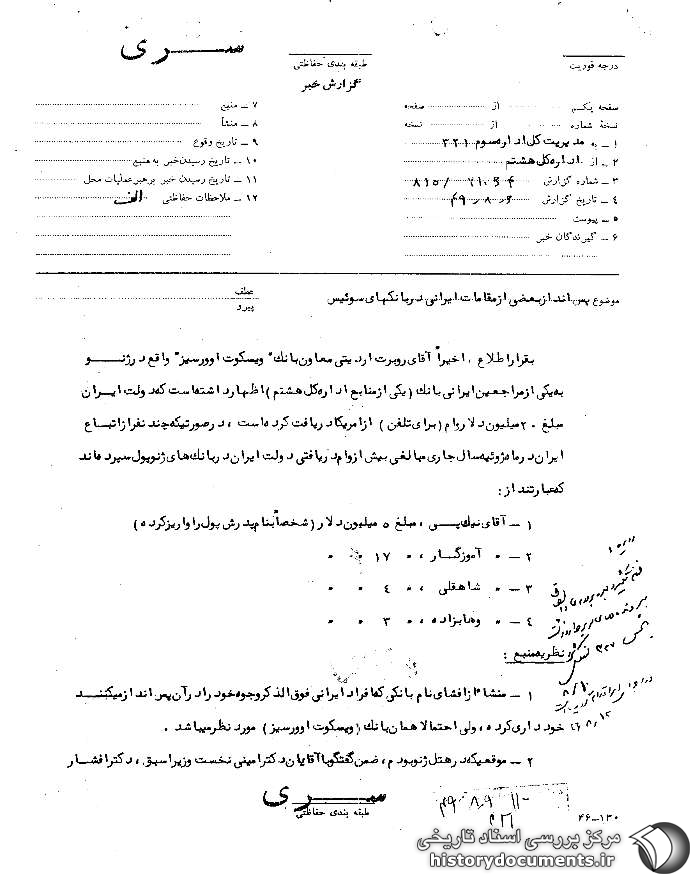 سری
درجه فوریت
طبقه بندی حفاظتی
گزارش خبر
صفحه یکم از صفحه
نسخهٔ شماره از نسخه
۱ ــ به مدیریت کل اداره سوم ۳۲۱
۲ ــ از اداره کل هشتم
۳ ــ شماره گزارش
۴ ــ تاریخ گزارش
۵ ــ پیوست
۶ ــ گیرندگان خبر
۷ ــ منبع
۸ ــ منشأ
۹ ــ تاریخ وقوع
۱۰ ــ تاریخ رسیدن خبر به منبع
۱۱ ــ تاریخ رسیدن خبر برهبر عملیات محل
۱۲ ــ ملاحظات حفاظتی الف
موضوع پس انداز بعضی از مقامات ایرانی در بانکهای سوئیس
عطف
پیرو
بقرار اطلاع ، اخیراً آقای روبرت اردیتی معاون بانک "ویسکوت اوورسیز" واقع در ژنو
به یکی از مراجعین ایرانی بانک (یکی از منابع اداره کل هشتم) اظهار داشته است که دولت ایران
مبلغ ۲۰ میلیون دلار وام (برای تلفن) از امریکا دریافت کرده است ، در صورتیکه چند نفر از اتباع
ایران در ماه ژوئیه سال جاری مبالغی بیش از وام دریافتی دولت ایران در بانک های ژنو پول سپرده اند
که عبارتند از :
۱ ــ آقای نیک پی ، مبلغ ۵ میلیون دلار (شخصاً بنام پدرش پول را واریز کرده)
۲ ــ " آموزگار ، " ۱۷ " "
۳ ــ " شاهقلی ، " ۴ " "
۴ ــ " وهابزاده ، " ۳ " "
نظریه منبع :
۱ ــ منشأ از افشای نام بانکی که افراد ایرانی فوق الذکر وجوه خود را در آن پس انداز میکنند
خودداری کرده ، ولی احتمالا همان بانک (ویسکوت اوورسیز) مورد نظر میباشد .
۲ ــ موقعیکه در هتل ژنو بودم ، ضمن گفتگو با آقایان دکتر امینی نخست وزیر اسبق ، دکتر افشار
سری
طبقه بندی حفاظتی
۴۶-۱۳۰
مرکز بررسی اسناد تاریخی
historydocuments.ir